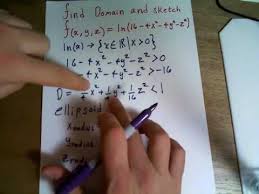 find Domain and sketch
f(x,y,z) = ln(16-4x²-4y²-z²)
ln(a) → {x∈ℝ|x>0}
16-4x²-4y²-z²>0
4x²-4y²-z²>-16
D = x²+1/4y²+1/16z²<1
ellipsoid
xradius
yradius
zradius